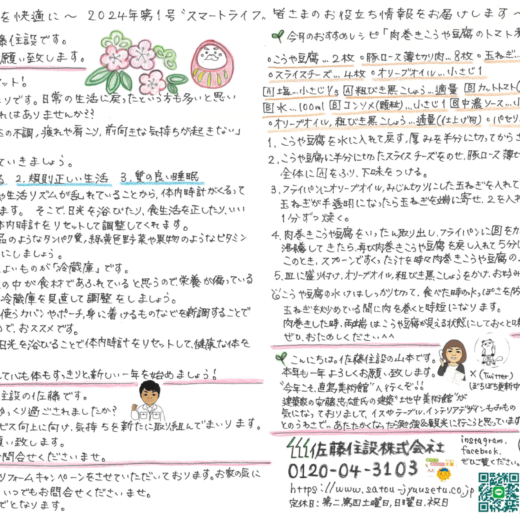 を快適に〜 2024年第1号 "スマートライフ" 皆さまのお役立ち情報をお届けします〜
条住設です。
願い致します。
ット!
りです。日常の生活に戻ったという方も多いと思い
れはありませんか??
の不調,疲れや肩こり,前向きな気持ちが起きない」
ていきましょう。
る 2,規則正しい生活 3,質の良い睡眠
や生活リズムが乱れていることから、体内時計がくるって
ます。 そこで、日光を浴びたり、食生活を正したり、いい
体内時計をリセットして調整してくれます。
品のようなタンパク質、緑黄色野菜や果物のようなビタミン
にしましょう。
よいものが「冷蔵庫」です。
の中が食材であふれていると思うので、栄養が偏っている
冷蔵庫を見直して調整をしましょう。
使うカバンやポーチ、身に着けるものなどを新調することで
ので、おススメです。
日光を浴びることで体内時計をリセットして、健康な体を
していい心も体もすっきりと新しい一年を始めましょう!
住設の佐藤です。
ゆっくり過ごされましたか?
ビス向上に向け、気持ちを新たに取り組んでまいります。
願い致します。
お問合せくださいませ。
リフォームキャンペーンをさせていただいております。お家の気に
いつでもお問合せくださいませ。
でとなります。
今月のおすすめレシピ「肉巻きこうや豆腐のトマト
こうや豆腐…2枚 豚ロース薄切り肉…8枚 玉ねぎ…
スライスチーズ…4枚 オリーブオイル…小さじ1
A塩…小さじ1/3 A粗びき黒こしょう…適量 Bカットトマト(
B水…100ml Bコンソメ(顆粒)…小さじ1 B中濃ソース…小
オリーブオイル,粗びき黒こしょう…適量(仕上げ用) パセリ
1.こうや豆腐を水に入れて戻す,厚みを半分に切ってから
2.こうや豆腐に半分に切ったスライスチーズをのせ、豚ロース薄切
全体にAをふり、下味をつける。
3.フライパンにオリーブオイル、みじん切りにした玉ねぎを入れて
玉ねぎが半透明になったら玉ねぎを端に寄せ、2を入れ
1分ずつ焼く。
4.肉巻きこうや豆腐をいったん取り出し、フライパンにBを
沸騰してきたら再び肉巻きこうや豆腐を戻し入れて5分
このとき、スプーンですくった汁を時々肉巻きこうや豆腐の
5.皿に盛り付け、オリーブオイル、粗びき黒こしょうをかけ、お好み
こうや豆腐の水けはしっかり切って、食べた時の水っぽさを防
玉ねぎを炒めている間に肉を巻くと時短になります。
肉巻きした時、両端はこうや豆腐が見える状態にしておくと
ぜひ、おためしください^^
こんにちは。佐藤住設の山本です。
本年も一年よろしくお願い致します。
今年こそ、直島美術館"へ行くぞ!!
建築家の安藤忠雄氏の建築"地中美術館"が
気になっておりまして、イスやテーブル、インテリアデザインもみもの
とのうわさで、あたたかくなったら勉強&観光に行こうと思っています
×(Twitter)
ぼちぼち更新中
佐藤住設株式会社
0120-04-3103
https://www.satou-jyuusetu.co.jp
定休日:第二,第四土曜日,日曜日,祝日
instagram,
facebook,
ぜひご覧ください。